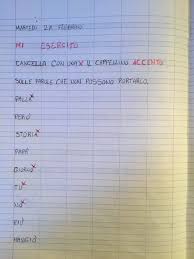 MARTEDÌ 27 FEBBRAIO
MI ESERCITO
CANCELLA CON UNA X IL CAPPELLINO ACCENTO
SULLE PAROLE CHE NON POSSONO PORTARLO.
PALLÀ X
PERÒ
STORIÀ X
PAPÀ
X
TÙ X
NÒ X
PIÙ
MANGIÒ